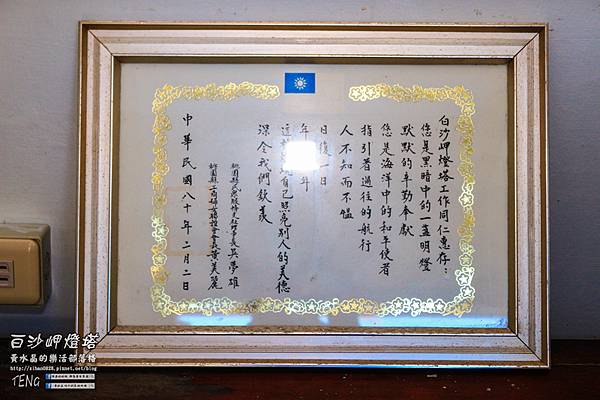 白沙岬燈塔工作同仁惠存：
您是黑暗中的一盞明燈
默默的辛勤奉獻
您是海洋中的和平使者
指引著過往的航行
人不知而不慍
日復一日
年 年
這 自己照亮別人的美德
深令我們欽羨
吳夢雄
黃美麗
中華民國八十年二月二日
白沙岬燈塔
黃水晶的樂活部落格
http://sihan0828.pixnet.net/blog
TENG